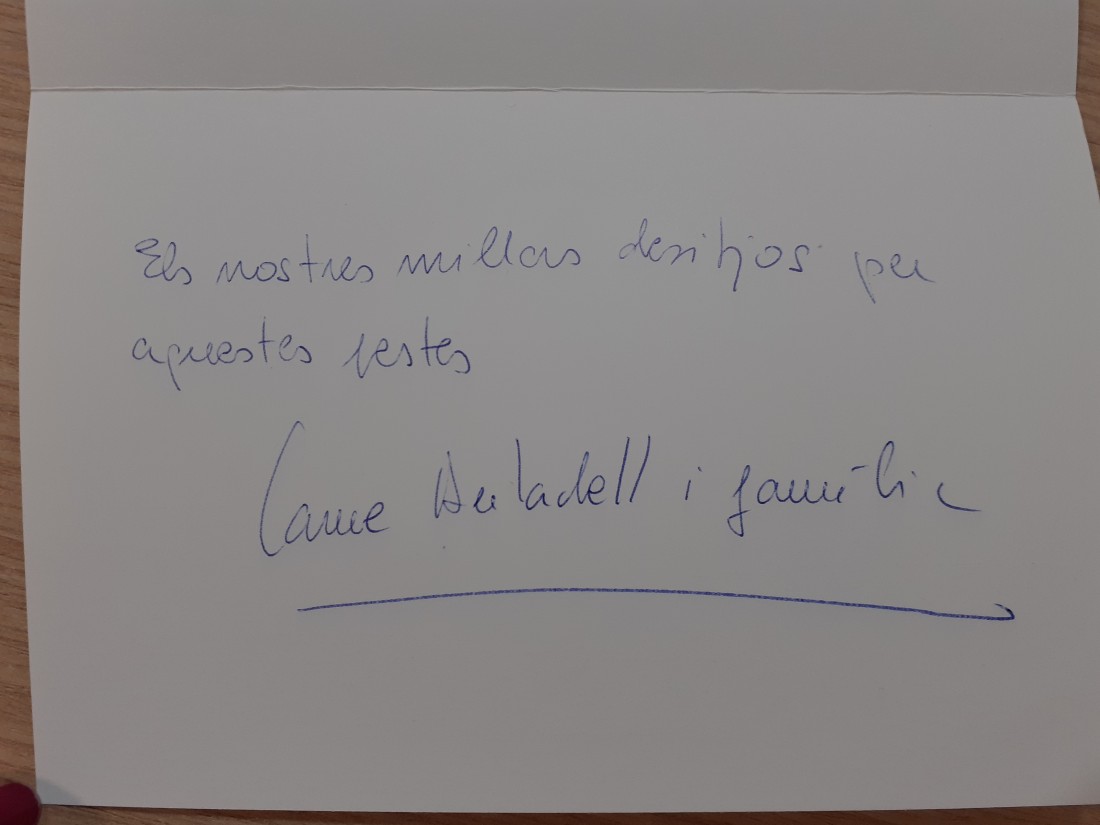 Els nostres millors desitjos per
aquestes festes
Carme i família